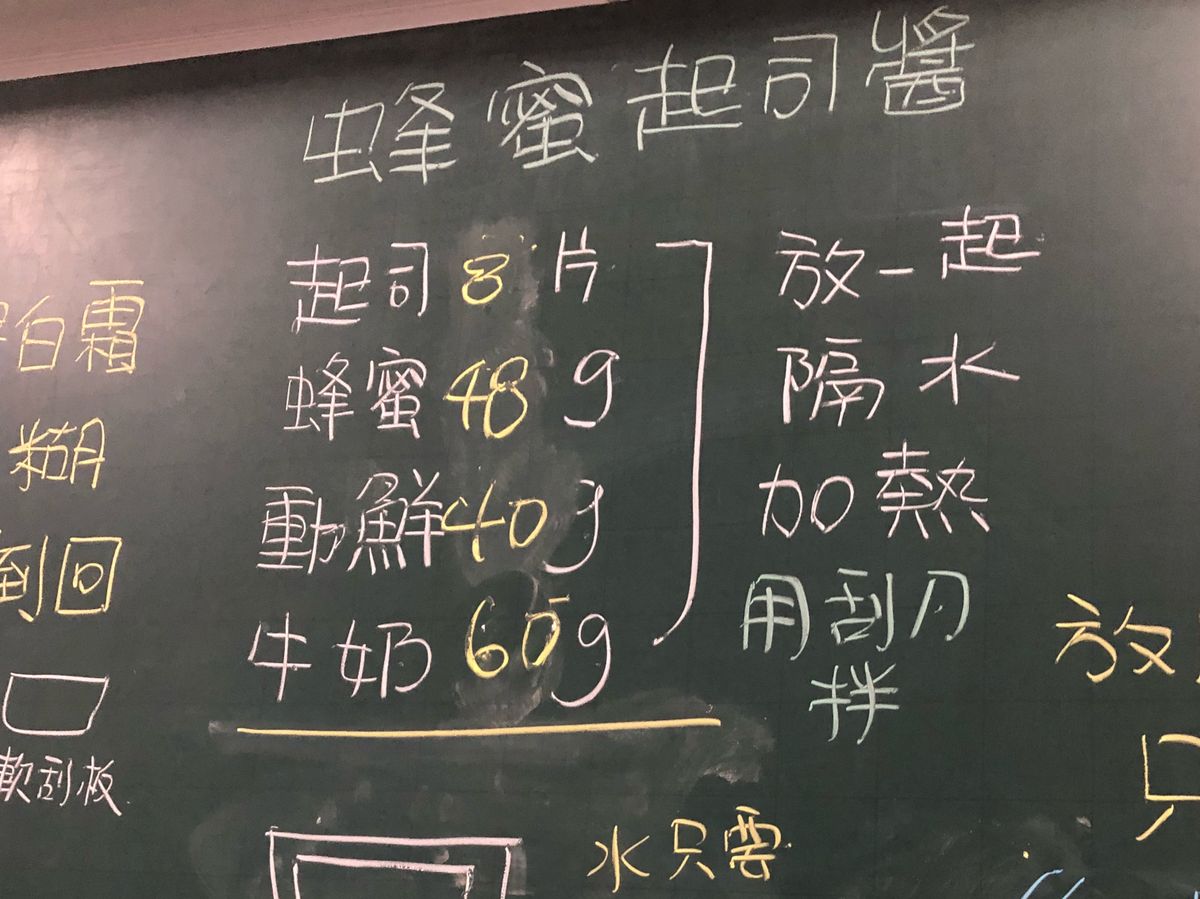 蜂蜜起司醬
起司 8 片
蜂蜜 48 g
動鮮 40 g
牛奶 60 g
放一起
隔水
加熱
用刮刀
拌
白霜
糊
倒回
軟刮板
水只雲
放
只